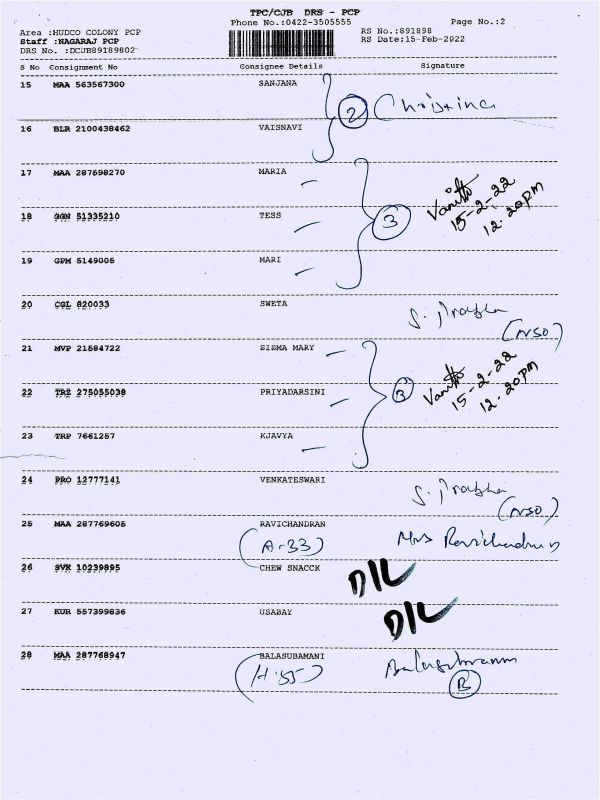 TPC/CJB DRS - PCP
Phone No.:0422-3505555 Page No.:2
Area :HUDCO COLONY PCP RS No.:891898
Staff :NAGARAJ PCP RS Date:15-Feb-2022
DRS No. :DCJB89189802
S No Consignment No Consignee Details Signature
15 MAA 563567300 SANJANA
2 Christina
16 BLR 2100438462 VAISNAVI
17 MAA 287598270 MARIA
18 GGN 51335210 TESS
3 15-2-22
12.20pm
19 GPM 5149005 MARI
20 CGL 820033 SWETA
(NSO)
21 MVP 21584722 SISMA MARY
22 TRZ 275055038 PRIYADARSINI
3 15-2-22
12.20pm
23 TRP 7661257 KJAVYA
24 PRO 12777141 VENKATESWARI
(NSO)
25 MAA 287769605 RAVICHANDRAN
(A-33) Mrs Ravichandran
26 SVK 10239895 CHEW SNACCK D/L
27 KUR 557399836 USABAY D/L
28 MAA 287768947 BALASUBAMANI
(H-55) B